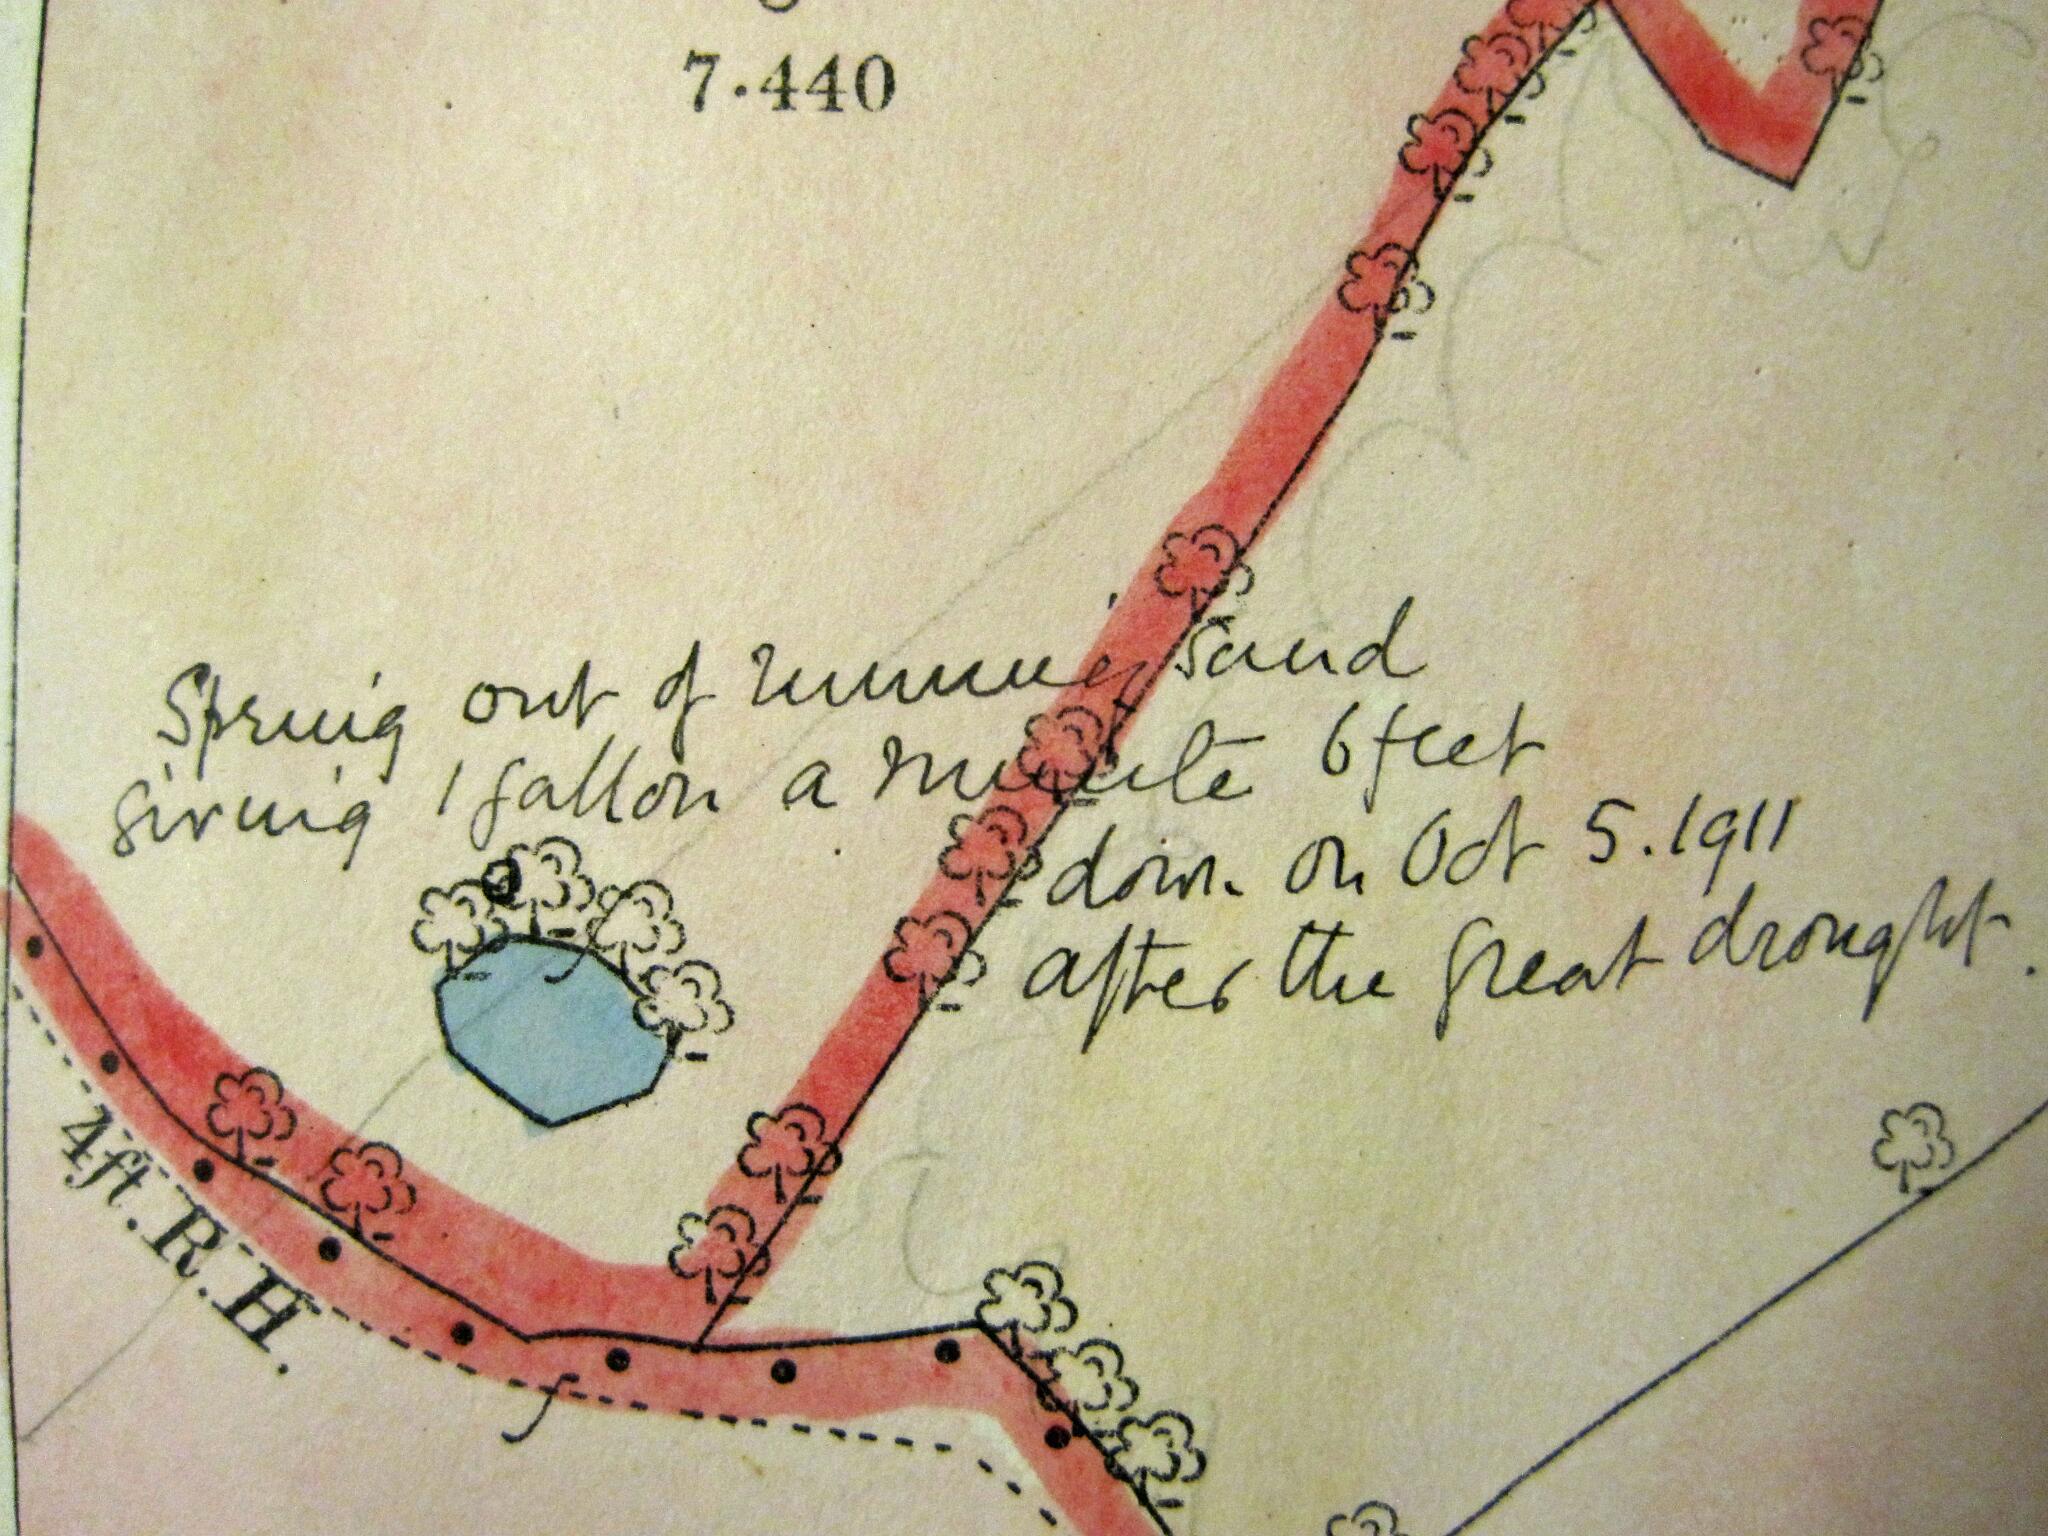 7.440
Spring out of running sand
giving 1 gallon a minute 6 feet
down on Oct 5.1911
after the great drought.
4ft. R.H.